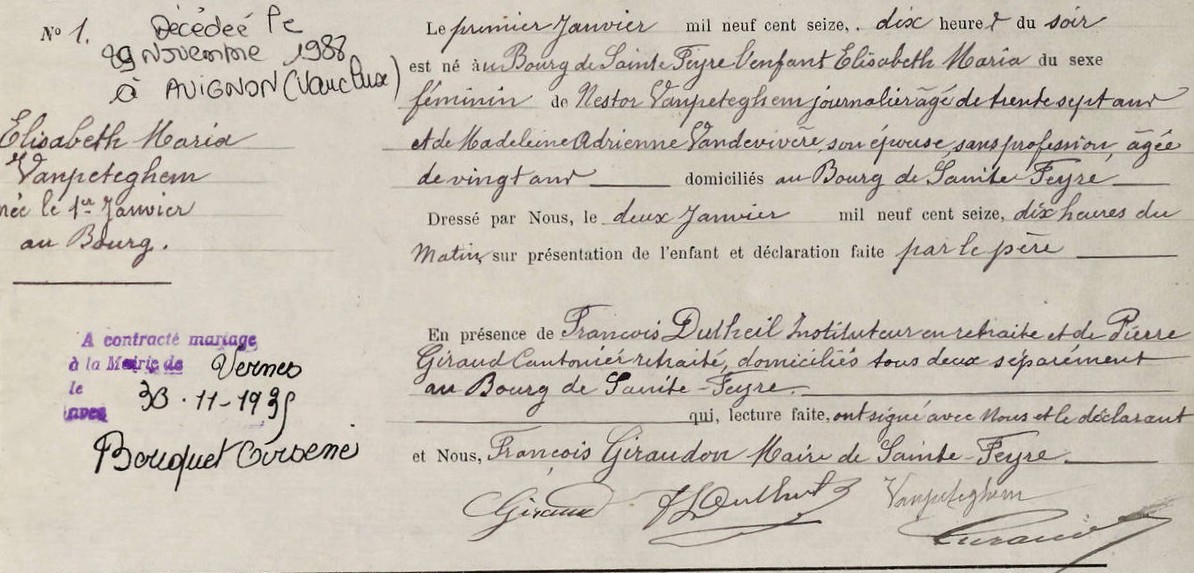 N° 1.
Décédée le
29 Novembre 1988
à AVIGNON (Vaucluse)
Elisabeth Maria
Vanpeteghem
née le 1er Janvier
au Bourg.
A contracté mariage
à la Mairie de Vernes
le -11-193
avec
Bouquet
Le premier Janvier mil neuf cent seize, dix heures du soir
est né à au Bourg de Sainte Feyre l'enfant Elisabeth Maria du sexe
féminin de Nestor Vanpeteghem journalier âgé de trente sept ans
et de Madeleine Adrienne Vandevivère, son épouse, sans profession, âgée
de vingt ans domiciliés au Bourg de Sainte-Feyre
Dressé par Nous, le deux Janvier mil neuf cent seize, dix heures du
Matin, sur présentation de l'enfant et déclaration faite par le père
En présence de François Dutheil Instituteur en retraite et de Pierre
Giraud Cantonier retraité, domiciliés tous deux séparément
au Bourg de Sainte-Feyre.
qui, lecture faite, ont signé avec Nous et le déclarant
et Nous, François Giraudon Maire de Sainte-Feyre.
Giraud Dutheil Vanpeteghem